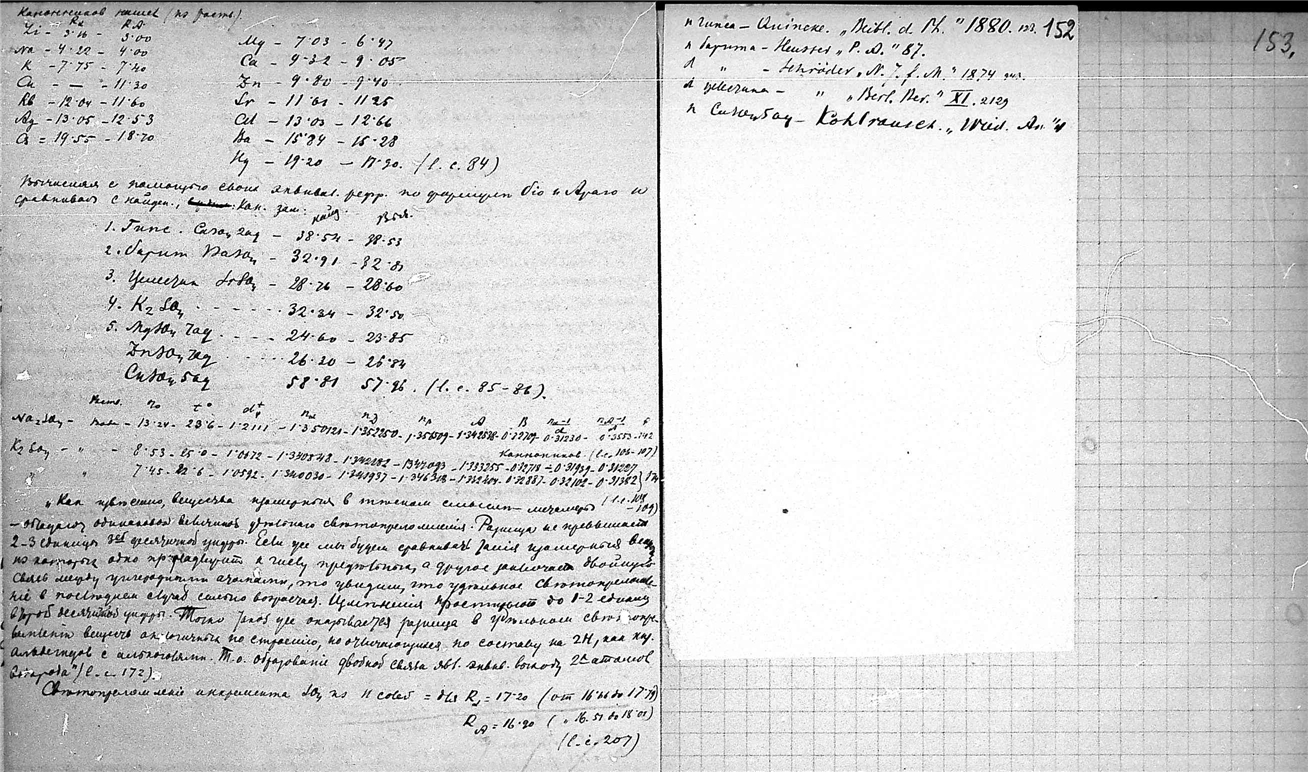 Канонников нашел (из раств.)
Rα RA
Li – 3·16 – 3·00
Na – 4·22 – 4·00
K – 7·75 – 7·40
Cu – — – 11·30
Rb – 12·04 – 11·60
Ag – 13·05 – 12·53
Cs = 19·55 – 18·70
Mg – 7·03 – 6·47
Ca – 9·32 – 9·05
Zn – 9·80 – 9·40
Sr – 11·61 – 11·25
Cd – 13·03 – 12·66
Ba – 15·84 – 15·28
Hg – 19·20 – 17·90. (l. c. 84)
Вычисляя с помощью своих эквивал. рефр. по формулам Био и Араго и
сравнивая с найден., Кан. зам.
найд. Выч.
1. Гипс. CaSO4 2aq – 38·54 – 38·53
2. Барит BaSO4 – 32·91 – 32·81
3. Целестин SrSO4 – 28·76 – 28·60
4. K2SO4 – – – – – 32·34 – 32·50
5. MgSO4 7aq . – – – . 24·60 – 23·85
ZnSO4 7aq 26·20 – 26·84
CuSO4 5aq 58·81 57·96. (l. c. 85–86).
% t° nα nD nβ A B
Na2SO4 – – 13·24 – 23·6 – 1·2111 – 1·350121 – 1·352250
K2SO4 – „ – 8·53 – 25·0 – 1·0672 – 1·340548 – 1·342282
Канонников (l. c. 106–107)
„ 7·45 – 1·0592 – 1·340030 – 1·341937
„Как известно, вещества изомерныя в тесном смысле – метамеры (l. c. 108
–109)
– обладают одинаковой величиной удельного светопреломления. Разница не превышает
2–3 единицы 3ей десятичной цифры. Если же мы будем сравнивать такия изомерныя вещ.
из которых одно принадлежит к числу предельных, а другое заключает двойную
связь между углеродными атомами, то увидим, что удельное светопреломле-
ние в последнем случае сильно возрастает. Изменения простирают до 1–2 единиц
второй десятичной цифры. Точно такой же оказывается разница в удельном светопре-
ломлении веществ аналогичных по строению, но отличающихся по составу на 2H, как напр.
альдегидов с алкоголями. Т. о. образование двойной связи явл. эквив. выходу 2х атомов
водорода" (l. c. 172).
Светопреломление инкремента SO4 из 11 солей = для Rα = 17·20 (от 16·66 до 17·79)
RA = 16·90 („ 16·51 до 18·01)
(l. c. 207)
n гипса – Quincke. „Beibl. d. Ph." 1880. 152
n барита – Heusser „P. A." 87.
d „ – Schröder „N. J. f. M." 1874
d целестина – „ „Berl. Ber." XI. 2129
n CuSO4 5aq – Kohlrausch. „Wied. An."
153.